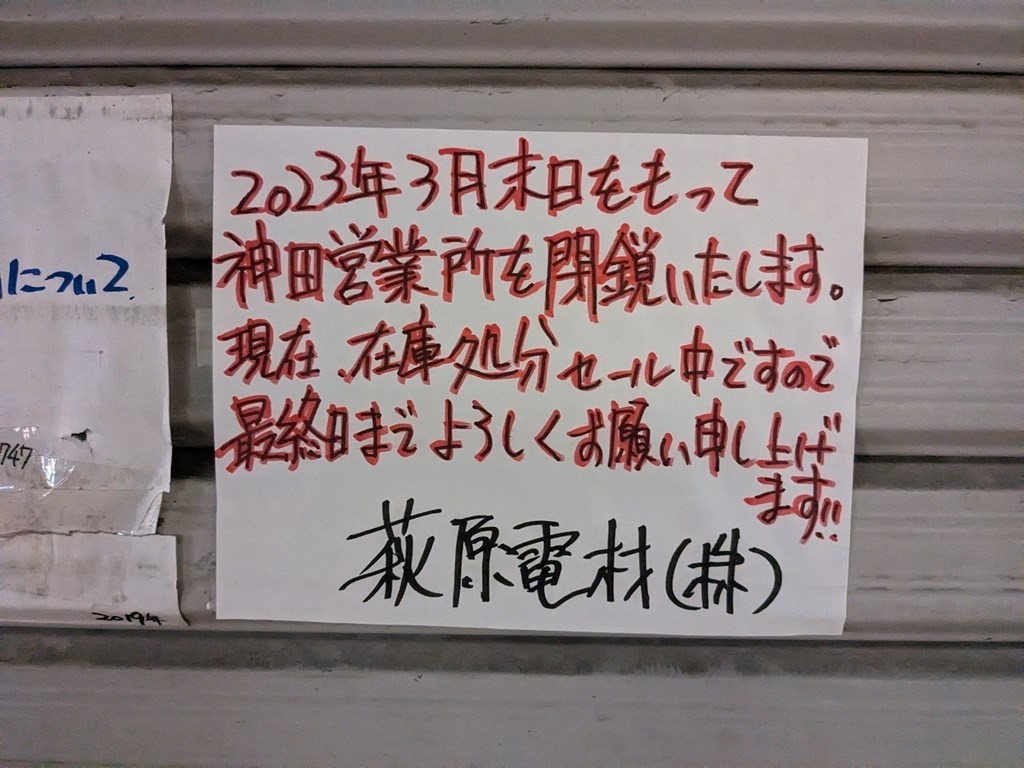 2023年3月末日をもって
神田営業所を閉鎖いたします。
現在、在庫処分セール中ですので
最終日までよろしくお願い申し上げ
ます!!
萩原電材(株)
について
747
2019年